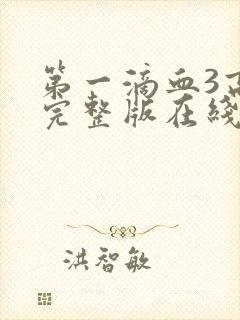 第一滴血3高
完整版在线
洪智敏